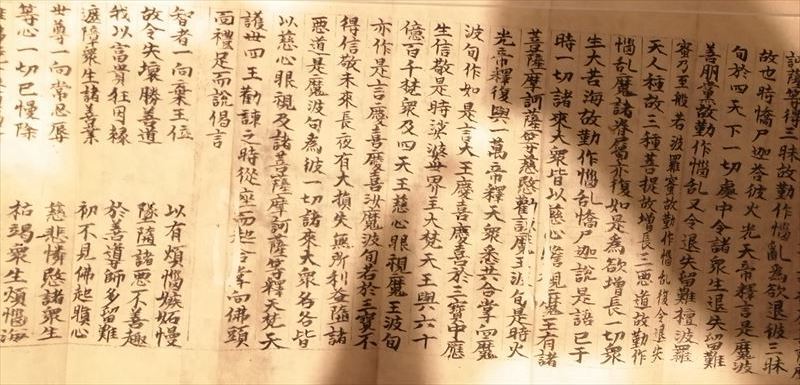 訶薩等得三昧故勤作惱亂為欲退彼三昧
故也時憍尸迦答彼火光天帝釋言是魔波
旬於四天下一切處中令諸眾生退失留難
善朋黨故勤作惱乱又令退失留難檀波羅
蜜乃至般若波羅蜜故勤作惱乱復令退失
天人種故三種菩提故增長三惡道故勤作
惱乱魔諸眷屬亦復如是為欲增長一切眾
生大苦海故勤作惱乱憍尸迦說是語已于
時一切諸來大眾皆以慈心驚見魔王有諸
菩薩摩訶薩等慈愍魔王波旬是時火
光帝釋復與一萬帝釋天眾共合掌向魔
波旬作如是言大王應喜應善於三寶中應
生信敬是時娑婆世界王大梵天王與六十
億百千梵眾及四天王慈心眼視魔王波旬
亦作是言應善應喜汝魔波旬若於三寶不
得信敬未來長夜有大損失無所利益隨諸
惡道是魔波旬為彼一切諸來大眾各各皆
以慈心眼視及諸菩薩摩訶薩等釋天梵天
護世四王勸諫之時從座而起合掌向佛頭
面禮足而說偈言
智者一向棄王位 以有煩惱嫉妬慢
故令失壞勝善道 隊隨諸惡不善趣
我以富貴狂因緣 於善導師多留難
遮障眾生諸善業 初不見佛起瞋心
世尊一向常忍辱 慈悲憐愍諸眾生
等心一切已慢除 枯竭眾生煩惱海